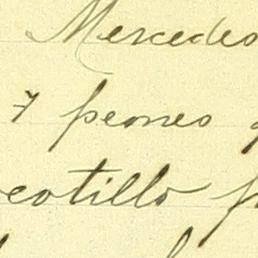 Mercedes
7 peones
cotillo